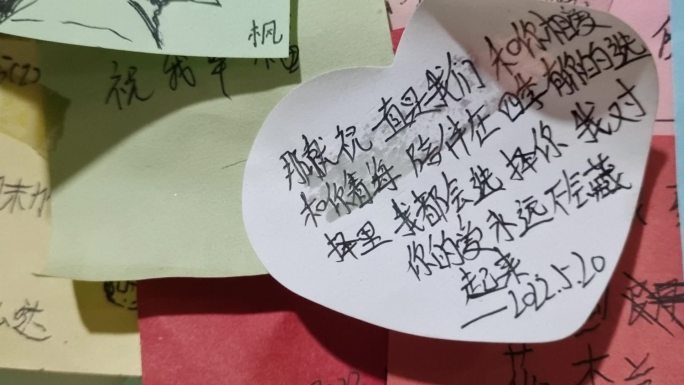 枫
祝我
那就祝一直是我们 和你相爱
和你看海 陪伴在四季 有限的选
择里 我都会选择你 我对
你的爱永远不会藏
起来
—2022.5.20